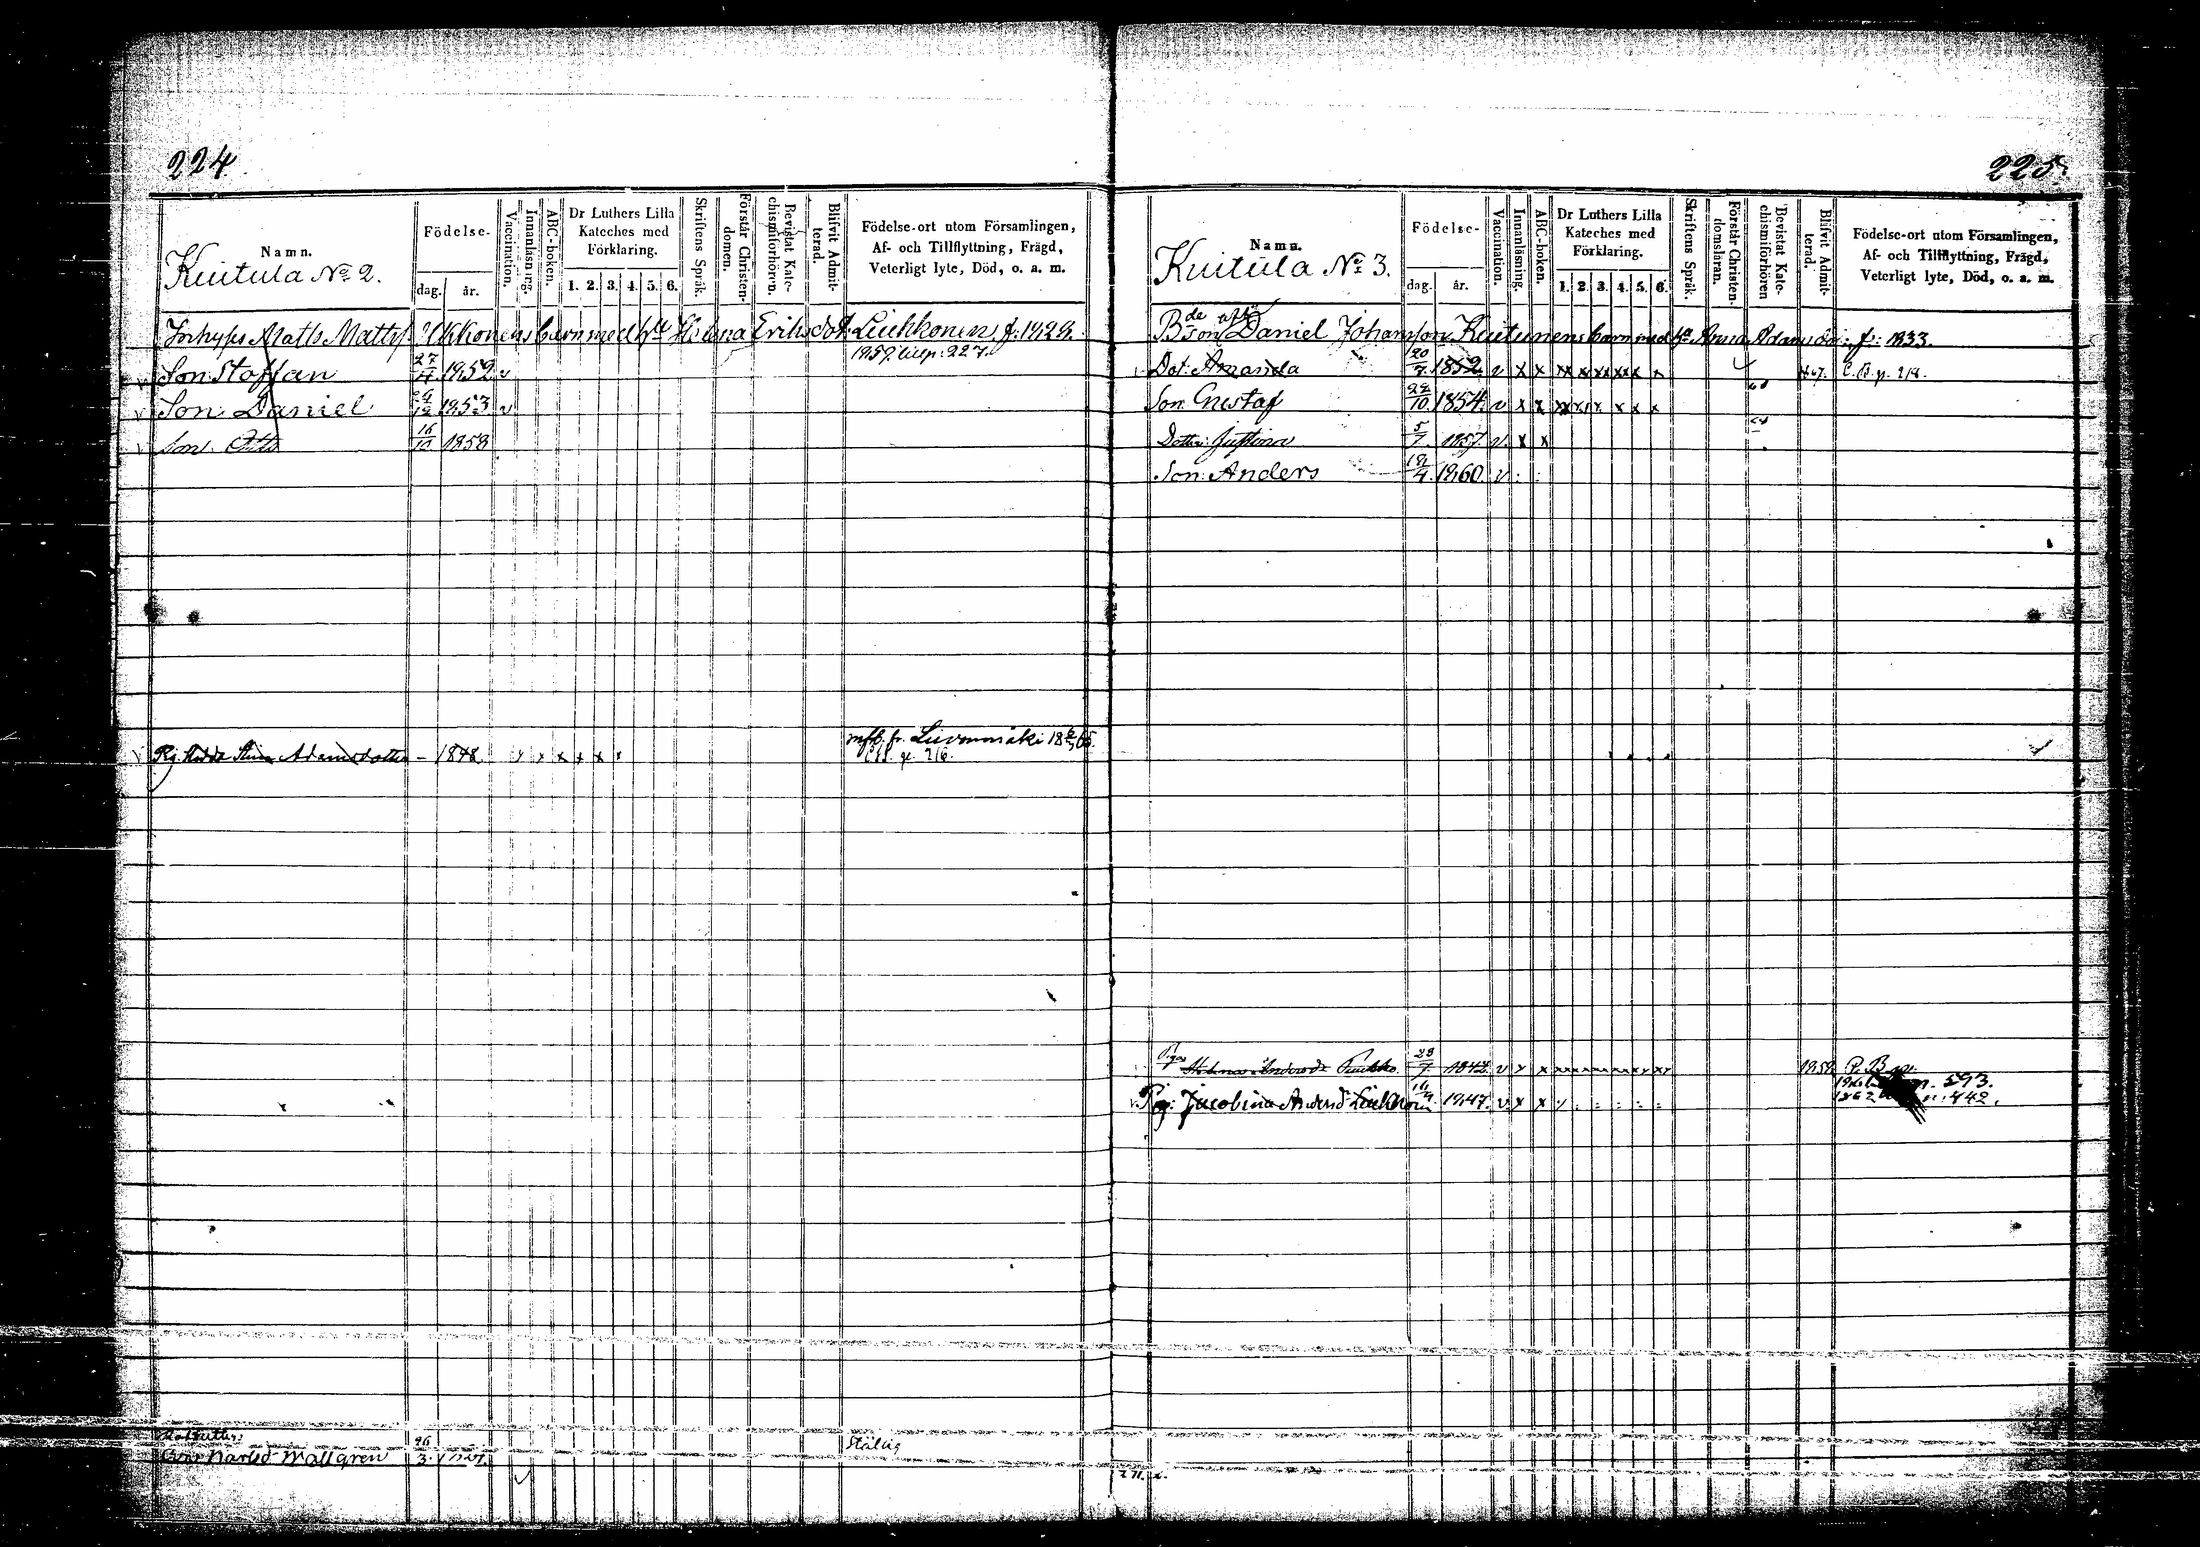 224
Namn.
Kuitula No 2.
Födelse-
dag. år.
Vaccination.
Innanläsning.
ABC-boken.
Dr Luthers Lilla Kateches med Förklaring.
1. 2. 3. 4. 5. 6.
Skriftens Språk.
Förstår Christen-domen.
Bevistat Kate-chismiförhören.
Blifvit Admit-terad.
Födelse-ort utom Församlingen,
Af- och Tillflyttning, Frägd,
Veterligt lyte, Död, o. a. m.
Matts Matts: Ukkonens barn med h:u Helena Eriksdot: Leukkonen f: 1828.
1859 p: 227.
Son: Staffan 27/11 1852 v
Son Daniel 1853 v
Son. Otto 16/10 1858
Pig. Hedda Stina Adamsdotter – 1848 x x x x x x
infl. fr. Liivonmäki
p. 216.
Wallgren
225.
Namn.
Kuitula No 3.
Födelse-
dag. år.
Vaccination.
Innanläsning.
ABC-boken.
Dr Luthers Lilla Kateches med Förklaring.
1. 2. 3. 4. 5. 6.
Skriftens Språk.
Förstår Christen-domsläran.
Bevistat Kate-chismiförhören
Blifvit Admit-terad.
Födelse-ort utom Församlingen,
Af- och Tillflyttning, Frägd,
Veterligt lyte, Död, o. a. m.
Bson Daniel Johansson Kuitunens barn med h:u Anna Adamsdo: f: 1833.
Dot: Amanda 20/7 1852 v x x xx x xx xx x x
Son: Gustaf 28/10 1854 v x x
Dotter: Justina 5/7 1857 v x x
Son: Anders 18/4 1860. v
Piga Helena Andersdr 23/7 1842 v x x 1859
p. 593.
Pig: Jacobina Andersd Leukkonen 1847. v x x
1862 p: 442.